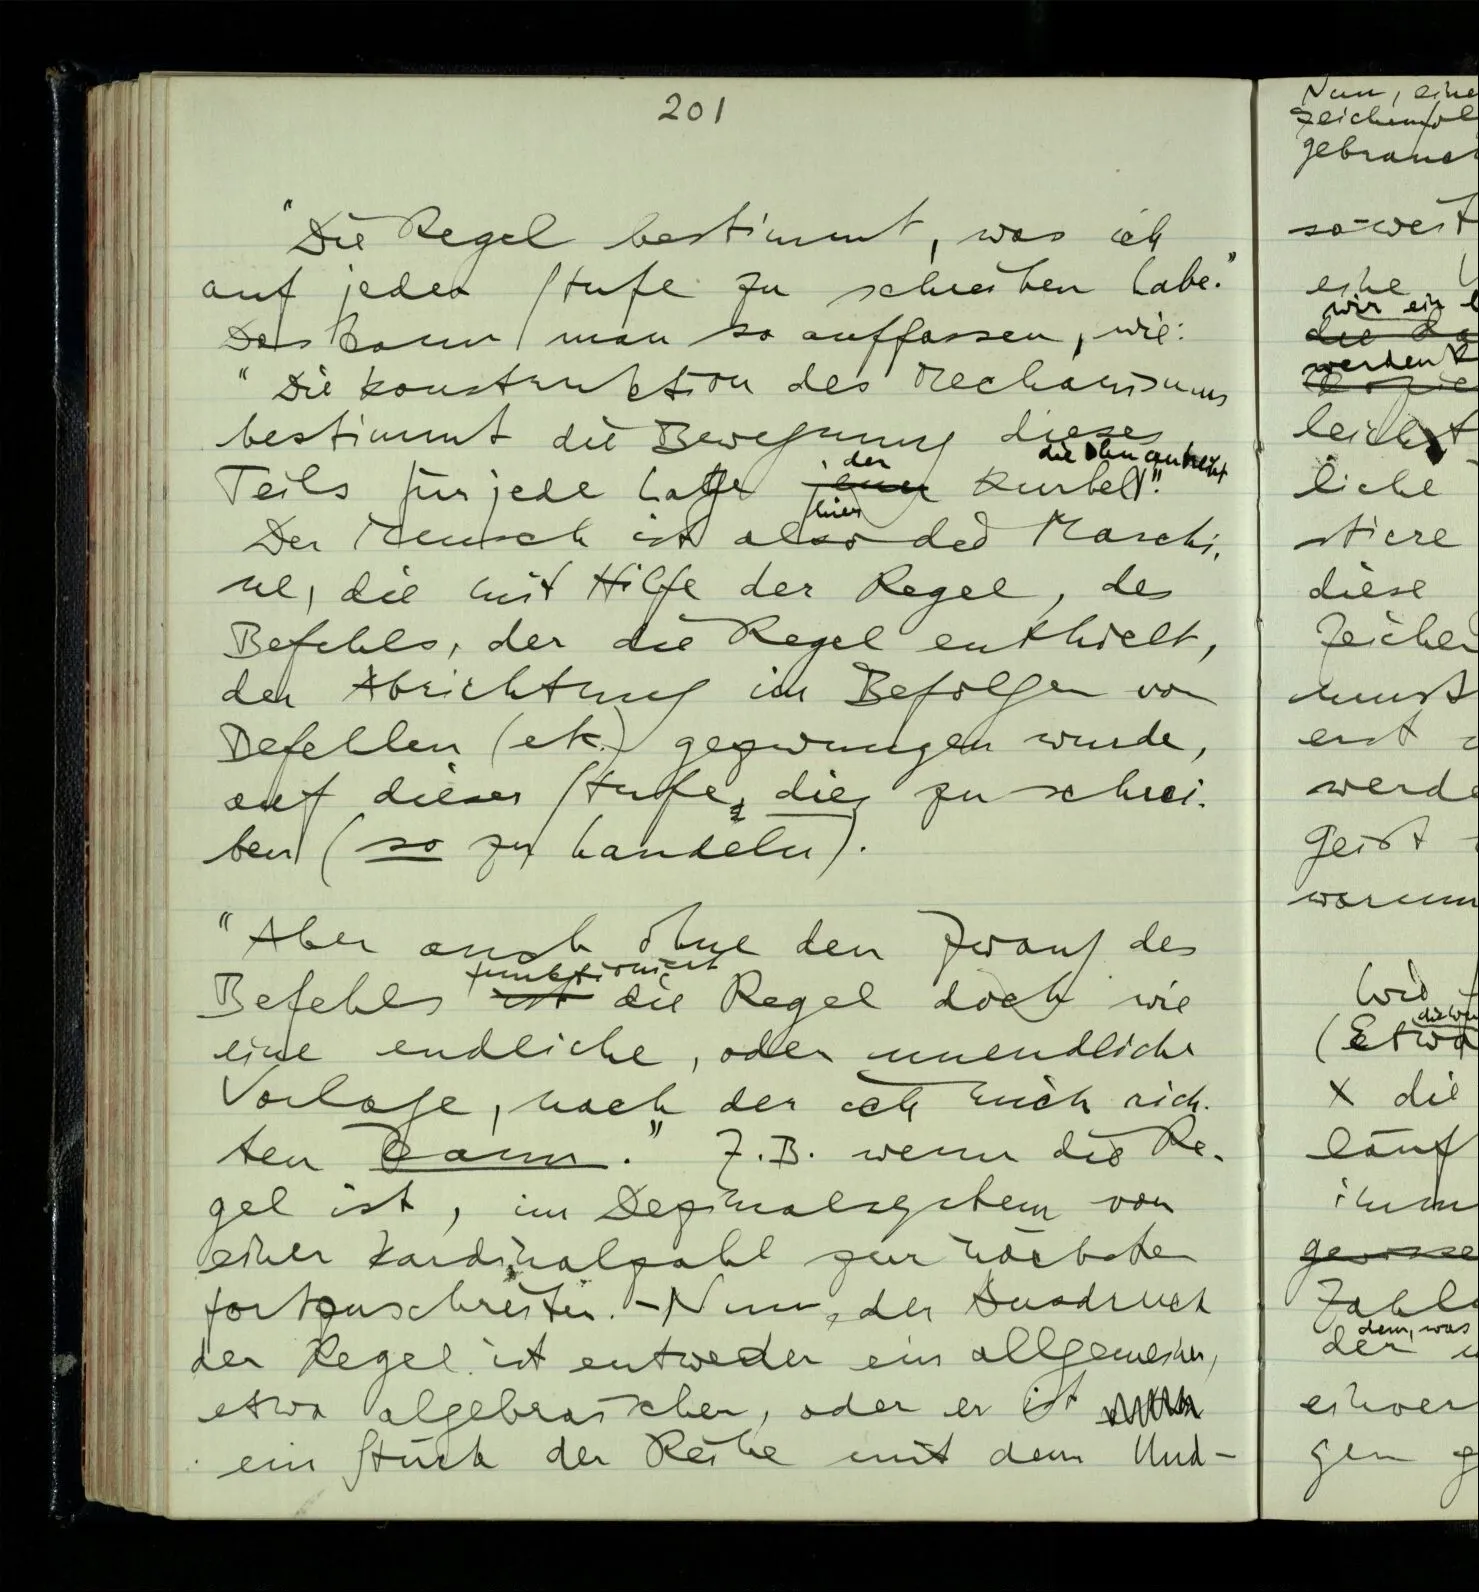 201
"Die Regel bestimmt, was ich
auf jeder Stufe zu schreiben habe."
Das kann man so auffassen, wie:
"Die Konstruktion des Mechanismus
bestimmt die Bewegung dieses
die ihn antreibt
der
Teils für jede Lage einer Kurbel".
hier
Der Mensch ist also die Maschi-
ne, die mit Hilfe der Regel, des
Befehls, der die Regel enthielt,
der Abrichtung im Befolgen von
Befehlen (etc.) gezwungen wurde,
auf dieser Stufe, dies zu schrei-
ben (so zu handeln).
"Aber auch ohne den Zwang des
funktioniert
Befehls ist die Regel doch wie
eine endliche, oder unendliche
Vorlage, nach der ich mich rich-
ten kann." Z.B. wenn die Re-
gel ist, im Dezimalsystem von
einer Kardinalzahl zur nächsten
fortzuschreiten. – Nun, der Ausdruck
der Regel ist entweder ein allgemeiner,
etwa algebraischer, oder er ist
ein Stück der Reihe mit dem Und-
Nun, eine
gebrauch
so-weit
eine
wir ein
werden
leicht
liche
stiere
diese
Zeichen
musst
erst
werde
Geist
warum
Wie
(Etwa
x die
läuf
imm
Zahl
dem, was
der
gen